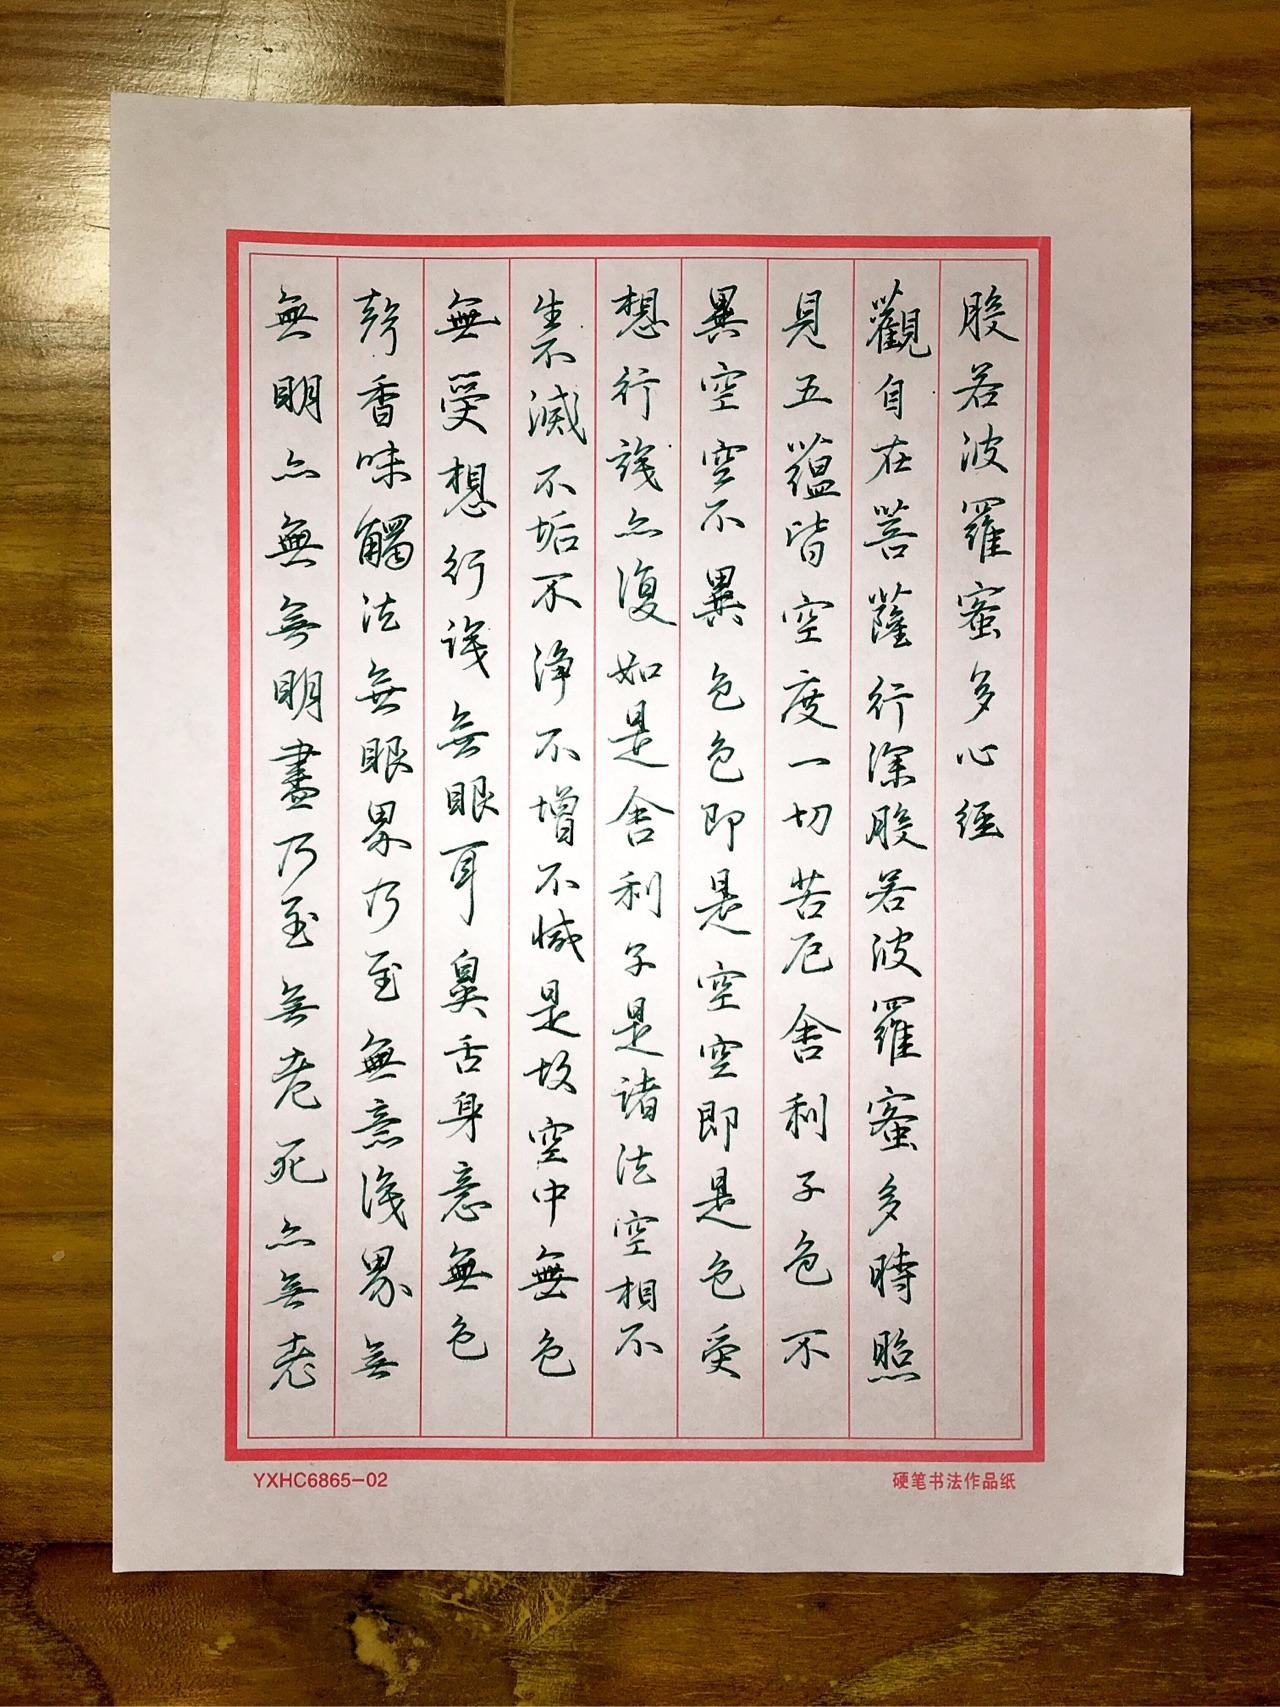 般若波羅蜜多心經
觀自在菩薩行深般若波羅蜜多時照
見五蘊皆空度一切苦厄舍利子色不
異空空不異色色即是空空即是色受
想行識亦復如是舍利子是諸法空相不
生不滅不垢不淨不增不減是故空中無色
無受想行識無眼耳鼻舌身意無色
聲香味觸法無眼界乃至無意識界無
無明亦無無明盡乃至無老死亦無老
YXHC6865-02
硬笔书法作品纸